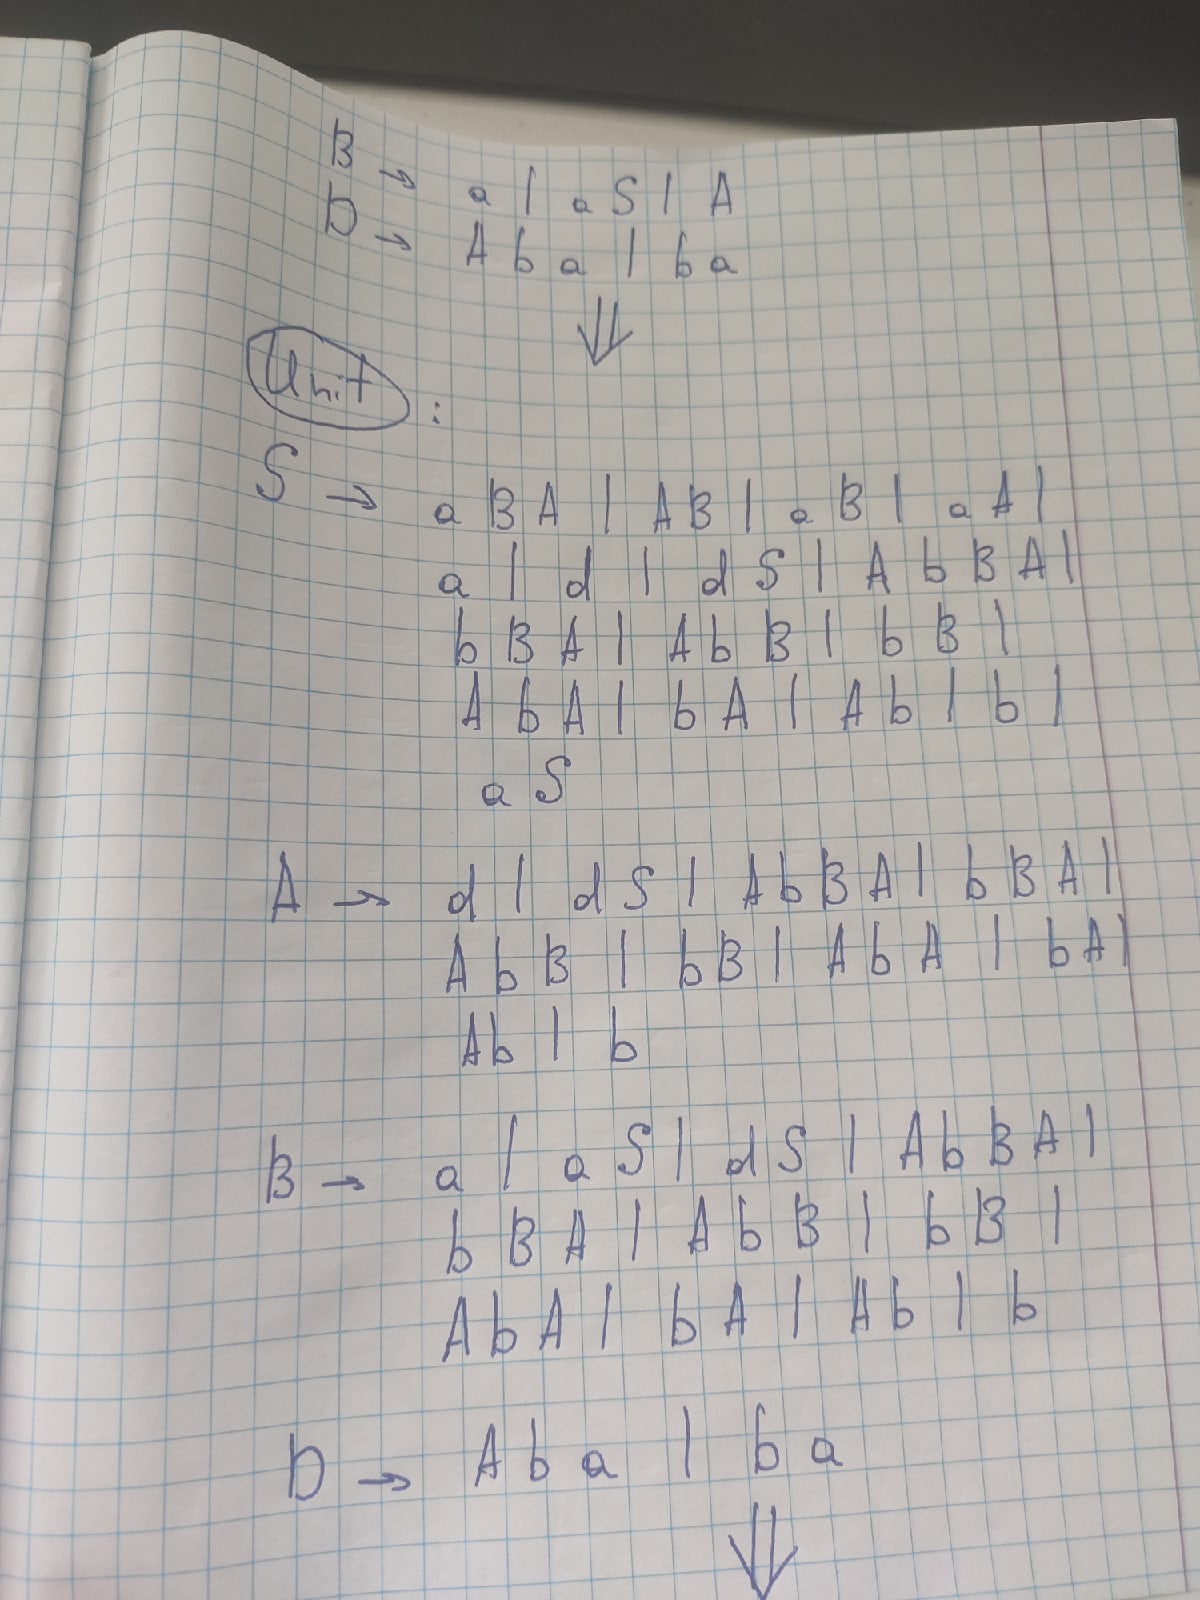 B → a | aS | A
D → Aba | ba
⇓
Unit :
S → aBA | AB | aB | aA |
a | d | dS | AbBA |
bBA | AbB | bB |
AbA | bA | Ab | b |
aS
A → d | dS | AbBA | bBA |
AbB | bB | AbA | bA |
Ab | b
B → a | aS | dS | AbBA |
bBA | AbB | bB |
AbA | bA | Ab | b
D → Aba | ba
⇓